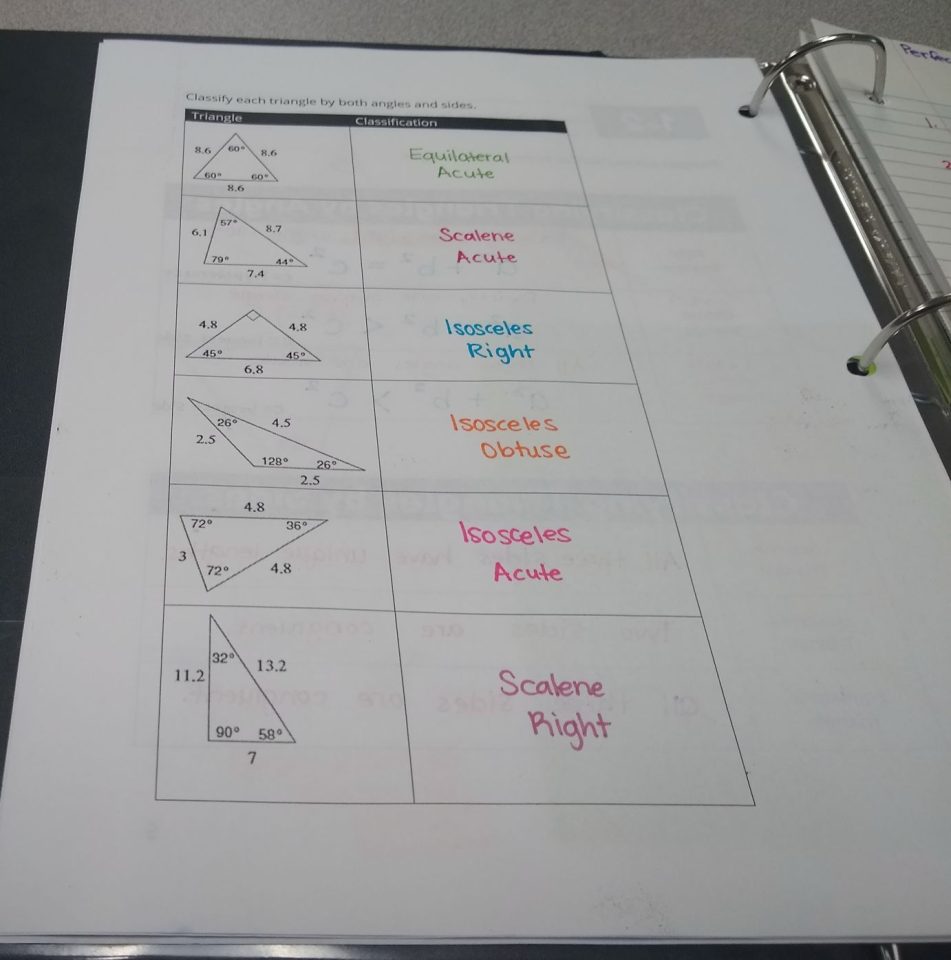 Perfec
1.
2
Classify each triangle by both angles and sides.
Triangle Classification
8.6 60° 8.6
60° 60°
8.6
Equilateral
Acute
57°
6.1 8.7
79° 44°
7.4
Scalene
Acute
4.8 4.8
45° 45°
6.8
Isosceles
Right
26° 4.5
2.5
128° 26°
2.5
Isosceles
Obtuse
4.8
72° 36°
3
72° 4.8
Isosceles
Acute
32°
11.2 13.2
90° 58°
7
Scalene
Right